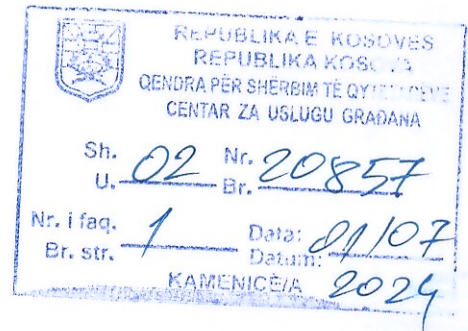 REPUBLIKA E KOSOVËS
REPUBLIKA KOSOVA
QENDRA PËR SHËRBIM TË QYTETARËVE
CENTAR ZA USLUGU GRAĐANA
Sh. U. 02 Nr. Br. 20857
Nr. i faq. Br. str. 1 Data: Datum: 01/07
KAMENICË/A 2024